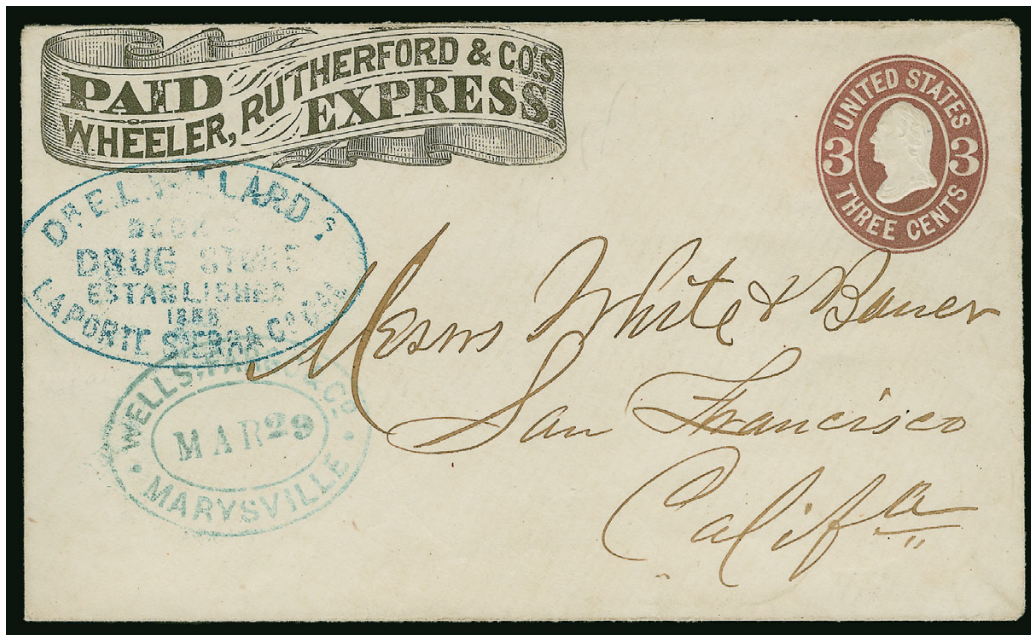 PAID
WHEELER, RUTHERFORD & CO'S
EXPRESS.
UNITED STATES
3 3
THREE CENTS
DR E. L. WILLARD'S
BOOK &
DRUG STORE
ESTABLISHED
LA PORTE SIERRA CO. CAL
WELLS, FARGO & CO.
MAR 29
MARYSVILLE
Messrs White & Bauer
San Francisco
Califa